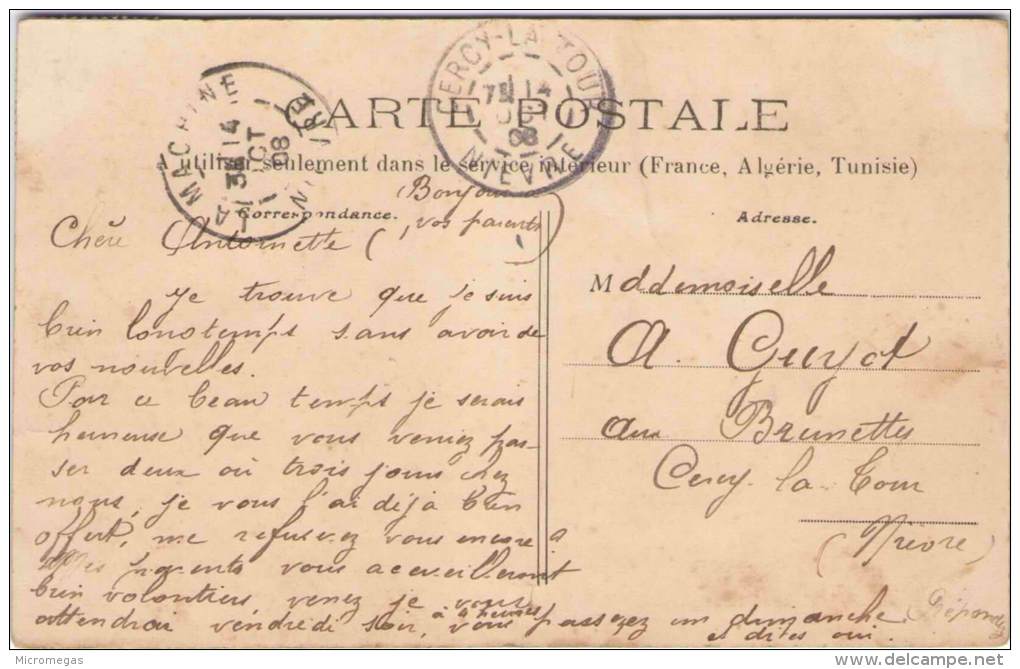 CARTE POSTALE
A utiliser seulement dans le service intérieur (France, Algérie, Tunisie)
Correspondance.
Adresse.
LA MACHINE
NIEVRE
3E 14
OCT
08
CERCY-LA-TOUR
NIEVRE
7E 14
OCT
08
(Bonjour à
vos parents)
Chère Antoinette
Je trouve que je suis
bien longtemps sans avoir de
vos nouvelles.
Par ce beau temps je serais
heureuse que vous veniez pas-
ser deux où trois jours chez
nous, je vous l'ai déjà bien
offert, me refuserez vous encore
Mes parents vous accueilleront
bien volontiers, venez je vous
attendrai vendredi soir, à 4 heures, vous passerez un dimanche
et dites oui.
Répondez
Mademoiselle
A. Guyot
aux Brunettes
Cercy-la-Tour
(Nièvre)
Micromegas
delcampe.net